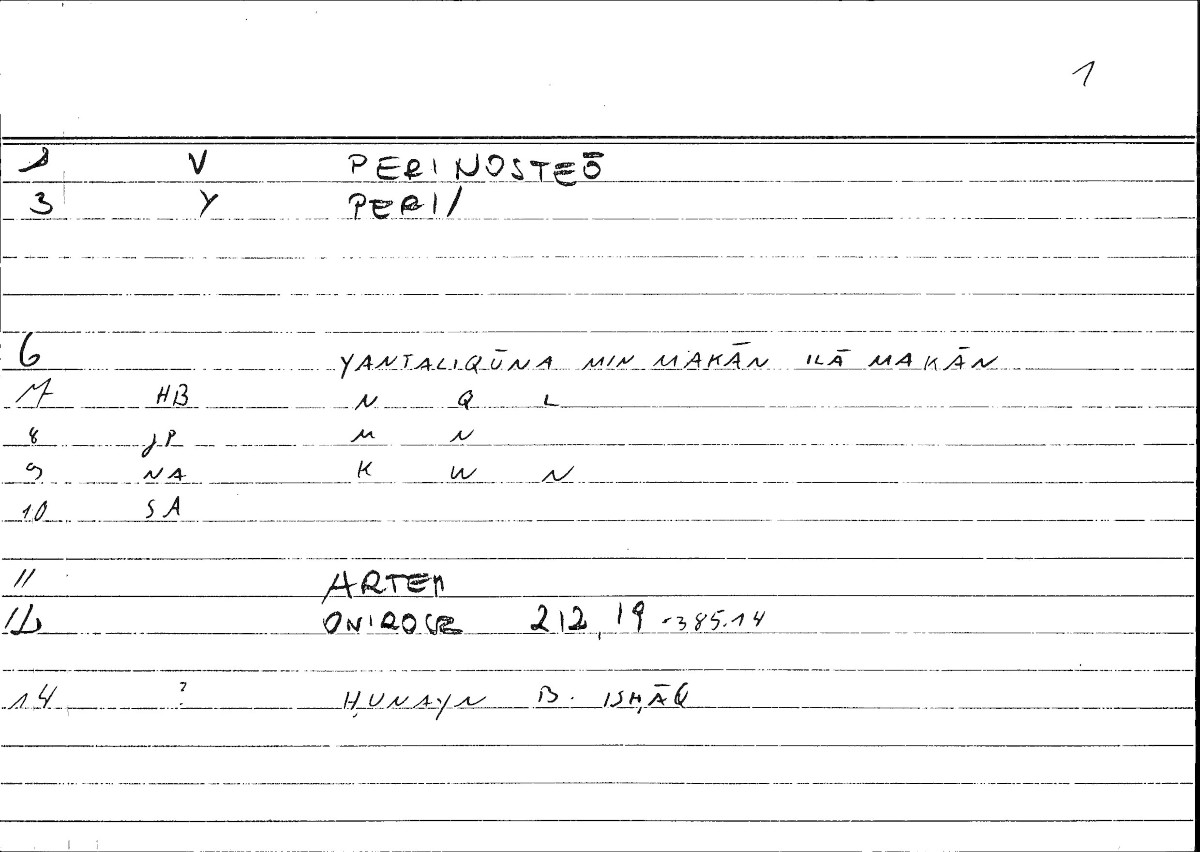 1
1 V PERINOSTEŌ
3 Y PERI/
6 YANTALIQŪNA MIN MAKĀN ILĀ MAKĀN
7 HB N Q L
8 JP M N
9 NA K W N
10 SA
11 ARTEM
12 ONIROCR 212,19 -385.14
14 ? ḤUNAYN B. ISḤĀQ